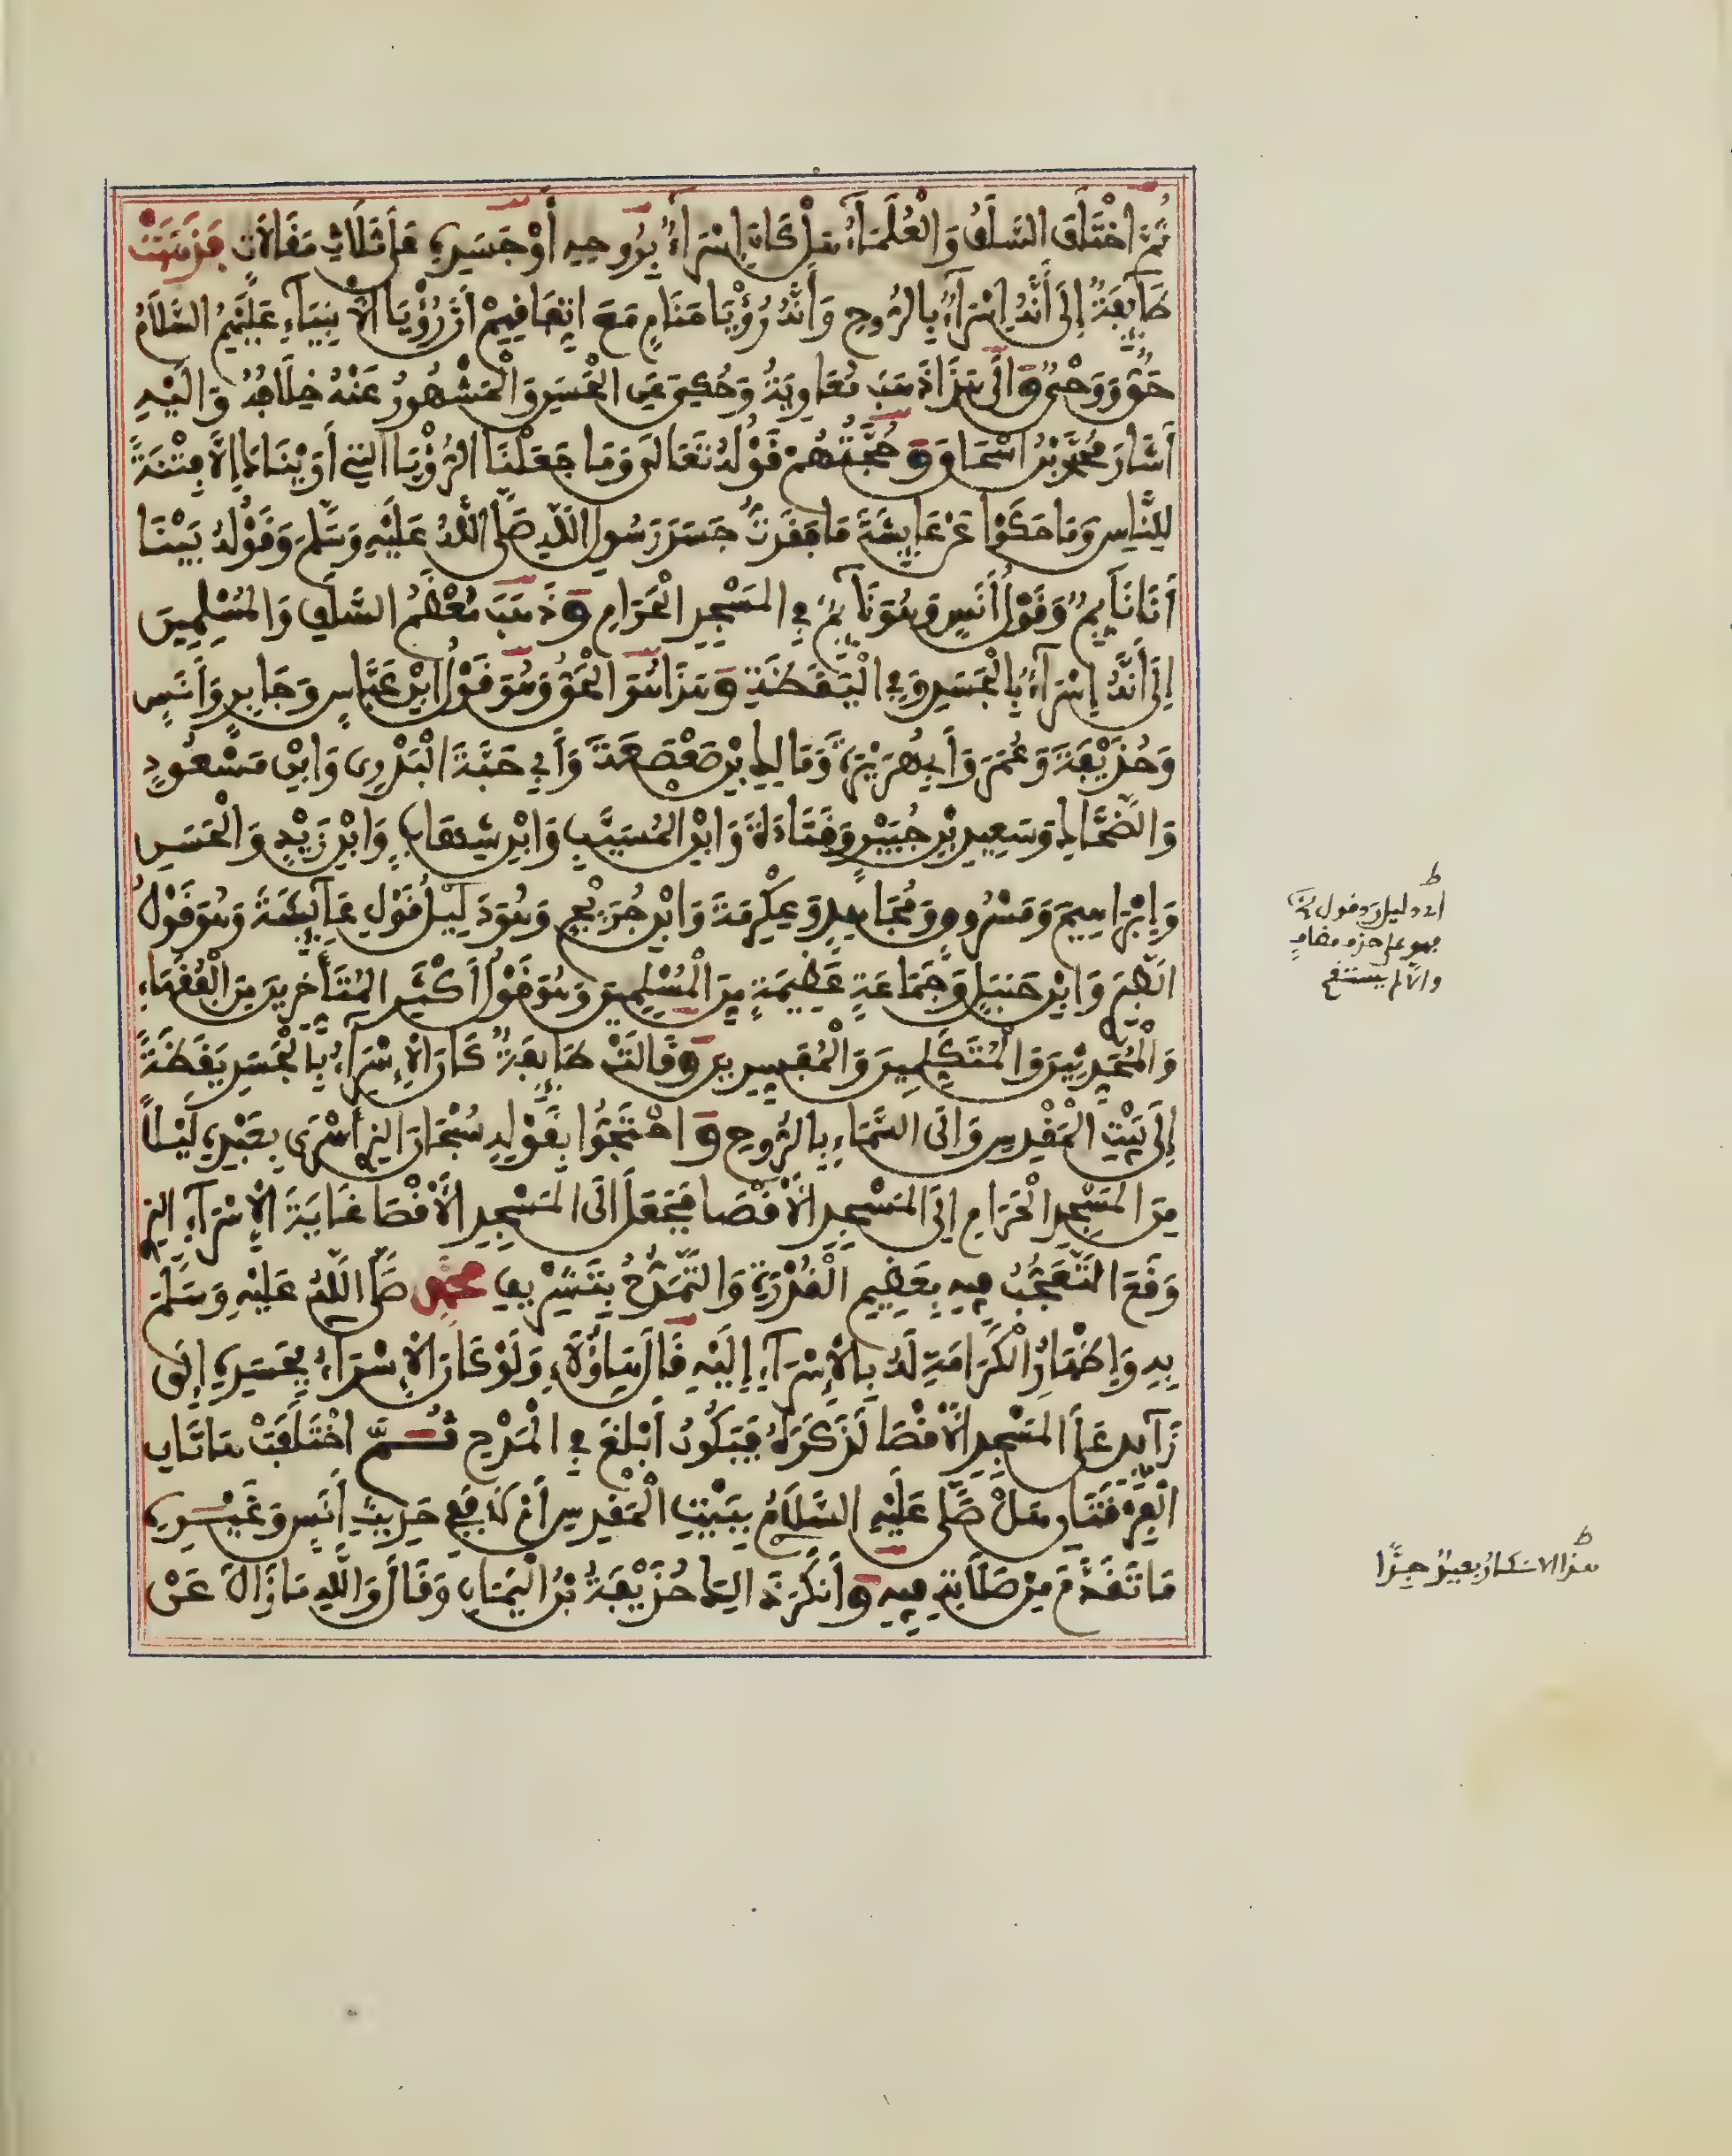 ثُمَّ اخْتَلَفَ السَّلَفُ وَالْعُلَمَاءُ هَلْ كَانَ إِسْرَاءٌ بِرُوحِهِ أَوْ جَسَدِهِ عَلَى ثَلَاثِ مَقَالَاتٍ فَذَهَبَتْ
طَائِفَةٌ إِلَى أَنَّهُ إِسْرَاءٌ بِالرُّوحِ وَأَنَّهُ رُؤْيَا مَنَامٍ مَعَ اتِّفَاقِهِمْ أَنَّ رُؤْيَا الْأَنْبِيَاءِ عَلَيْهِمُ السَّلَامُ
حَقٌّ وَوَحْيٌ وَإِلَى هَذَا ذَهَبَ مُعَاوِيَةُ وَحُكِيَ عَنِ الْحَسَنِ وَالْمَشْهُورُ عَنْهُ خِلَافُهُ وَإِلَيْهِ
أَشَارَ مُحَمَّدُ بْنُ إِسْحَاقَ وَحُجَّتُهُمْ قَوْلُهُ تَعَالَى وَمَا جَعَلْنَا الرُّؤْيَا الَّتِي أَرَيْنَاكَ إِلَّا فِتْنَةً
لِلنَّاسِ وَمَا حَكَوْا عَنْ عَائِشَةَ مَا فَقَدْتُ جَسَدَ رَسُولِ اللَّهِ صَلَّى اللَّهُ عَلَيْهِ وَسَلَّمَ وَقَوْلُهُ بَيْنَا
أَنَا نَائِمٌ وَقَوْلُ أَنَسٍ وَهُوَ نَائِمٌ فِي الْمَسْجِدِ الْحَرَامِ وَذَهَبَ مُعْظَمُ السَّلَفِ وَالْمُسْلِمِينَ
إِلَى أَنَّهُ إِسْرَاءٌ بِالْجَسَدِ وَفِي الْيَقَظَةِ وَهَذَا هُوَ الْحَقُّ وَهُوَ قَوْلُ ابْنِ عَبَّاسٍ وَجَابِرٍ وَأَنَسٍ
وَحُذَيْفَةَ وَعُمَرَ وَأَبِي هُرَيْرَةَ وَمَالِكِ بْنِ صَعْصَعَةَ وَأَبِي حَبَّةَ الْبَدْرِيِّ وَابْنِ مَسْعُودٍ
وَالضَّحَّاكِ وَسَعِيدِ بْنِ جُبَيْرٍ وَقَتَادَةَ وَابْنِ الْمُسَيَّبِ وَابْنِ شِهَابٍ وَابْنِ زَيْدٍ وَالْحَسَنِ
وَإِبْرَاهِيمَ وَمَسْرُوقٍ وَمُجَاهِدٍ وَعِكْرِمَةَ وَابْنِ جُرَيْجٍ وَهُوَ دَلِيلُ قَوْلِ عَائِشَةَ وَهُوَ قَوْلُ
الطَّبَرِيِّ وَابْنِ حَنْبَلٍ وَجَمَاعَةٍ عَظِيمَةٍ مِنَ الْمُسْلِمِينَ وَهُوَ قَوْلُ أَكْثَرِ الْمُتَأَخِّرِينَ مِنَ الْفُقَهَاءِ
وَالْمُحَدِّثِينَ وَالْمُتَكَلِّمِينَ وَالْمُفَسِّرِينَ وَقَالَتْ طَائِفَةٌ كَانَ الْإِسْرَاءُ بِالْجَسَدِ يَقَظَةً
إِلَى بَيْتِ الْمَقْدِسِ وَإِلَى السَّمَاءِ بِالرُّوحِ وَاحْتَجُّوا بِقَوْلِهِ سُبْحَانَ الَّذِي أَسْرَى بِعَبْدِهِ لَيْلًا
مِنَ الْمَسْجِدِ الْحَرَامِ إِلَى الْمَسْجِدِ الْأَقْصَا فَجَعَلَ إِلَى الْمَسْجِدِ الْأَقْصَا غَايَةَ الْإِسْرَاءِ الَّذِي
وَقَعَ التَّعَجُّبُ فِيهِ بِعَظِيمِ الْقُدْرَةِ وَالتَّمَدُّحُ بِتَشْرِيفِ مُحَمَّدٍ صَلَّى اللَّهُ عَلَيْهِ وَسَلَّمَ
بِهِ وَإِظْهَارُ الْكَرَامَةِ لَهُ بِالْإِسْرَاءِ إِلَيْهِ قَالَ هَؤُلَاءِ وَلَوْ كَانَ الْإِسْرَاءُ بِجَسَدِهِ إِلَى
زَائِدٍ عَلَى الْمَسْجِدِ الْأَقْصَا لَذَكَرَهُ فَيَكُونُ أَبْلَغَ فِي الْمَدْحِ ثُمَّ اخْتَلَفَتْ هَاتَانِ
الْفِرْقَتَانِ هَلْ صَلَّى عَلَيْهِ السَّلَامُ بِبَيْتِ الْمَقْدِسِ أَمْ لَا فَفِي حَدِيثِ أَنَسٍ وَغَيْرِهِ
مَا تَقَدَّمَ مِنْ صَلَاتِهِ فِيهِ وَأَنْكَرَ ذَلِكَ حُذَيْفَةُ بْنُ الْيَمَانِ وَقَالَ وَاللَّهِ مَا زَالَا عَنْ
ط
أي دليل رد قول
فهو على حذف مضاف
وإلا لم يستقم
ط
هذا الاستكار بعيد جدًا